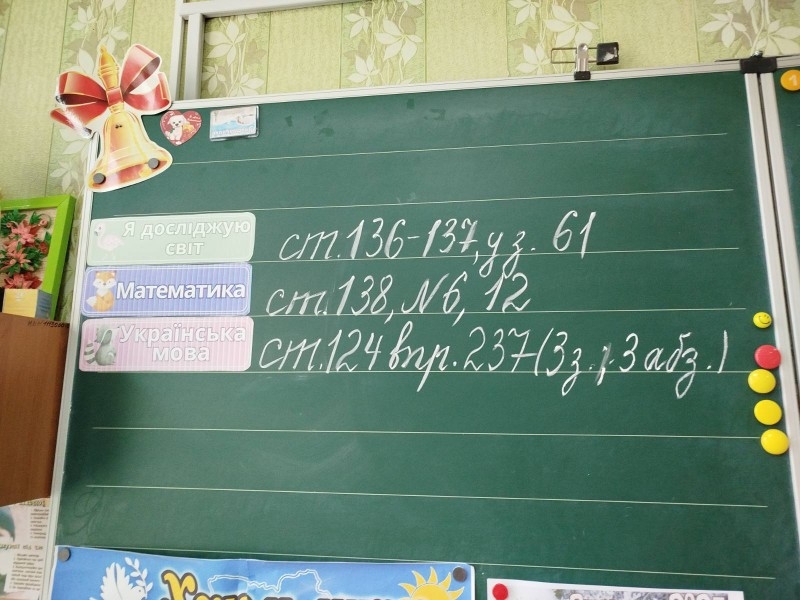 Я досліджую
світ
ст.136-137, уз. 61
Математика
ст.138, №6, 12
Українська
мова
ст.124 впр.237(3з., 3 абз.)